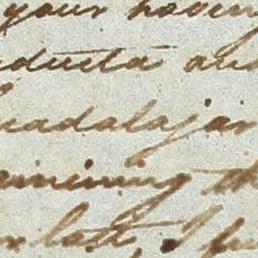 your having
ducta and
uadalajar
amining th
late, I fu